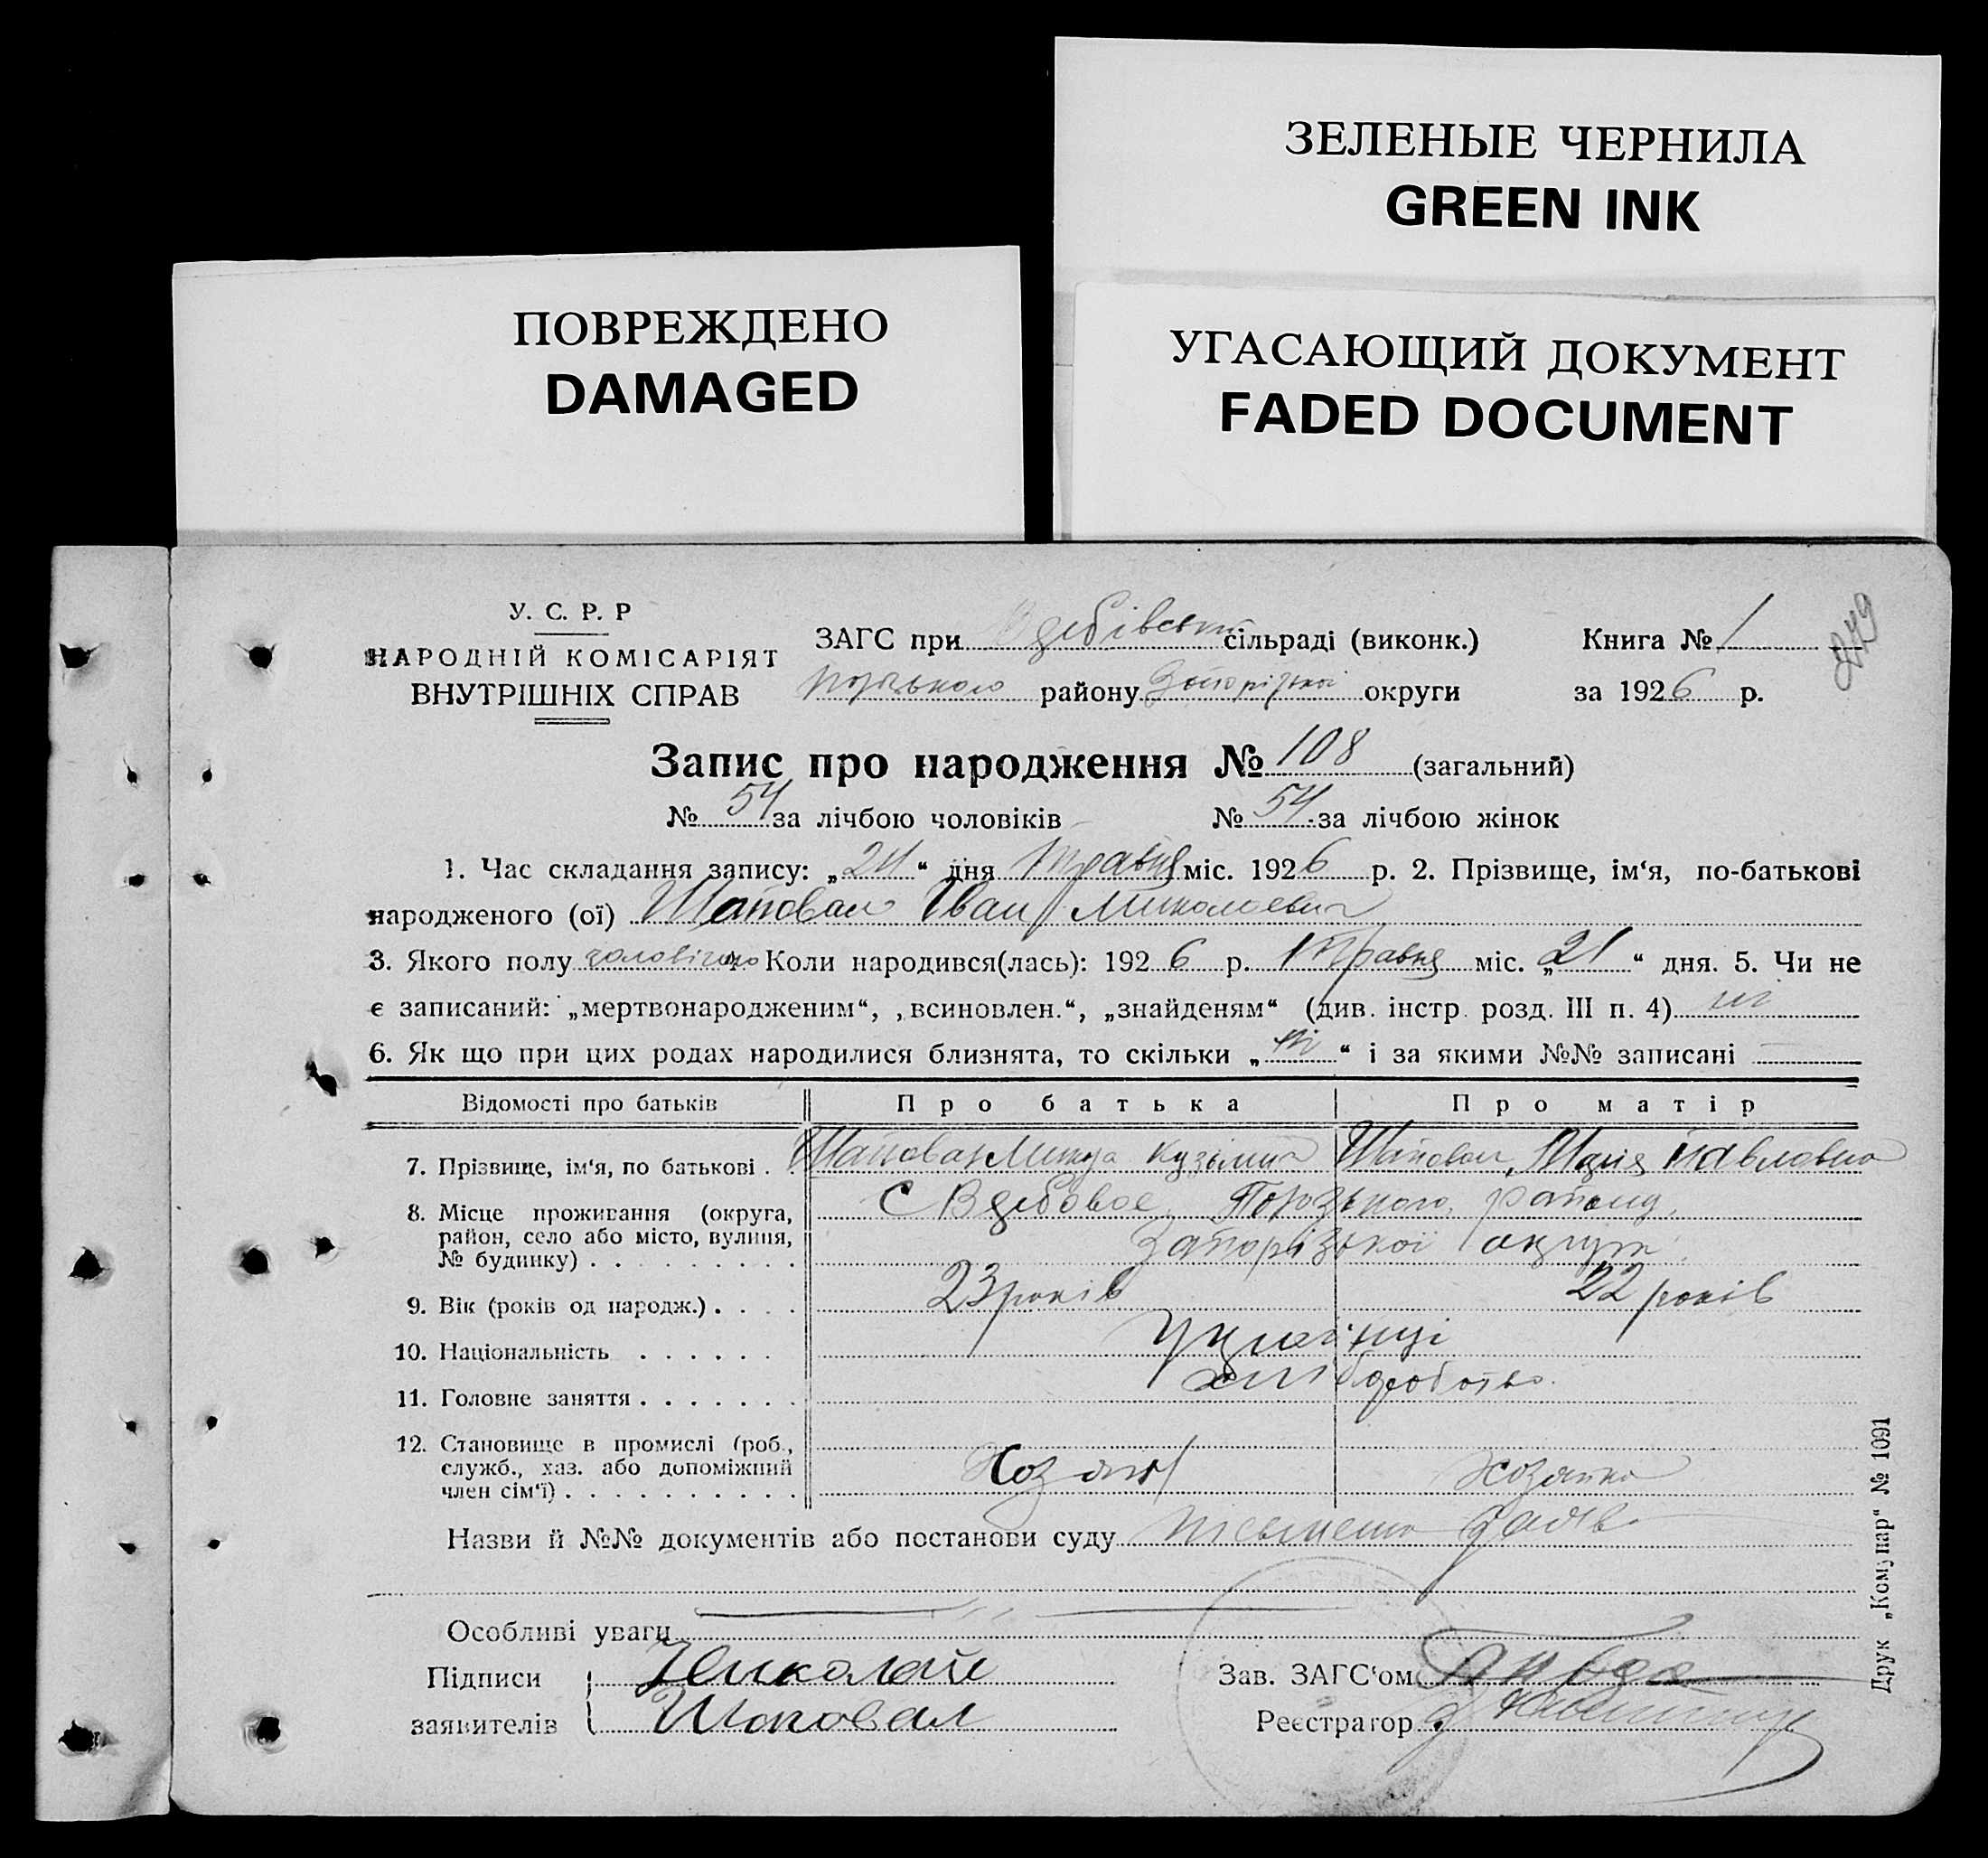 ЗЕЛЕНЫЕ ЧЕРНИЛА
GREEN INK
ПОВРЕЖДЕНО
DAMAGED
УГАСАЮЩИЙ ДОКУМЕНТ
FADED DOCUMENT
У. С. Р. Р
НАРОДНІЙ КОМІСАРІЯТ
ВНУТРІШНІХ СПРАВ
ЗАГС при сільраді (виконк.) Книга № 1
району Запорізької округи за 1926 р.
Запис про народження № 108 (загальний)
№ 54 за лічбою чоловіків № 54 за лічбою жінок
1. Час складання запису: „24“ дня Травня міс. 1926 р. 2. Прізвище, ім‘я, по-батькові
народженого (ої) Шаповал Іван Миколаевич
3. Якого полу чоловічого 4. Коли народився(лась): 1926 р. Травня міс. „21“ дня. 5. Чи не
є записаний: „мертвонародженим“, „всиновлен.“, „знайденям“ (див. інстр. розд. III п. 4) ні
6. Як що при цих родах народилися близнята, то скільки „ні“ і за якими №№ записані —
Відомості про батьків Про батька Про матір
7. Прізвище, ім‘я, по батькові . . Шаповал Микола Кузьмич Шаповал Марія Павловна
8. Місце проживання (округа,
район, село або місто, вулиця,
№ будинку) . . . . . . . . . району
Запорізької округи
9. Вік (років од народж.) . . . . 23 років 22 років
10. Національність . . . . . . Українці
11. Головне заняття . . . . . . . хліборобство.
12. Становище в промислі (роб.,
служб., хаз. або допоміжний
член сім‘ї) . . . . . . . . . . Хозяін хозяйка
Назви й №№ документів або постанови суду
Особливі уваги
Підписи Николай
заявителів Шаповал
Зав. ЗАГС‘ом
Реєстратор
Друк „Комунар“ № 1091